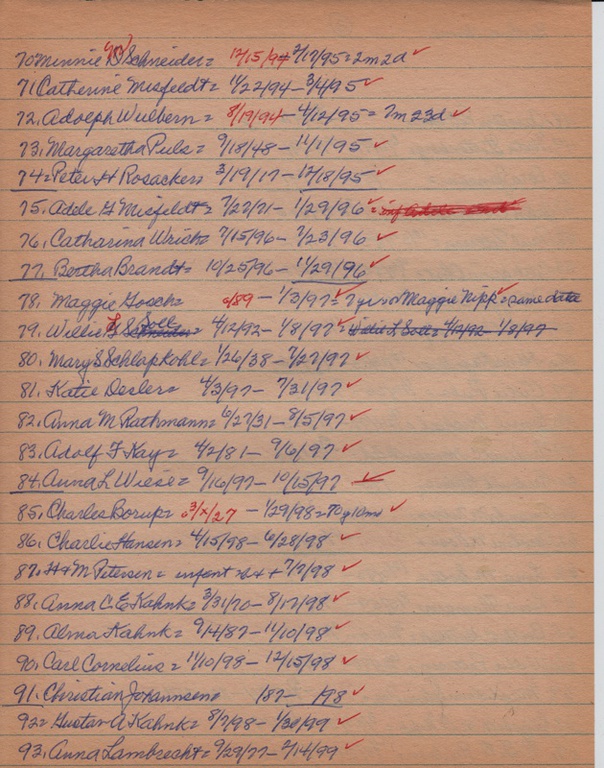 70 Minnie D Schneider = 12/15/94 2/17/95 = 2m 2d ✓
71 Catherine Misfeldt = 11/22/94 - 3/4/95 ✓
72, Adolph Wulbern = 8/19/94 - 4/12/95 = 7m 23d ✓
73, Margaretha Puls = 9/18/48 - 11/1/95 ✓
74 = Peter H Rosacker = 3/19/17 - 12/18/95 ✓
75, Adele G Misfeldt = 7/27/71 - 1/29/96 ✓
76, Catharina Wrich = 7/15/96 - 7/23/96 ✓
77, Bertha Brandt = 10/25/96 - 11/29/96 ✓
78, Maggie Gosch = 89 - 1/3/97 ✓ = 7 yrs or Maggie Nipp ✓ = same date
79, Willie L Soll = 4/12/92 - 1/8/97 ✓ = Willie L Soll = 4/12/92 1/8/97
80, Mary S Schlapkohl = 1/26/38 - 7/27/97 ✓
81, Katie Desler = 4/3/97 - 7/31/97 ✓
82, Anna M Rathmann = 6/27/31 - 8/5/97 ✓
83, Adolf F Kay = 4/2/81 - 9/6/97 ✓
84, Anna L Wiese = 9/16/97 - 10/15/97 ✓
85, Charles Borup = 3/x/27 - 1/29/98 = 70y 10mo ✓
86, Charlie Hansen = 4/15/98 - 6/28/98 ✓
87, H & M Petersen = infant + 7/7/98 ✓
88, Anna C. E Kahnk = 3/31/70 - 8/17/98 ✓
89, Alma Kahnk = 9/14/87 - 11/10/98 ✓
90, Carl Cornelius = 11/10/98 - 12/15/98 ✓
91, Christian Johannsen = 187- 198 ✓
92 = Gustav A Kahnk = 8/7/98 - 1/30/99 ✓
93, Anna Lambrecht = 9/29/77 - 2/14/99 ✓